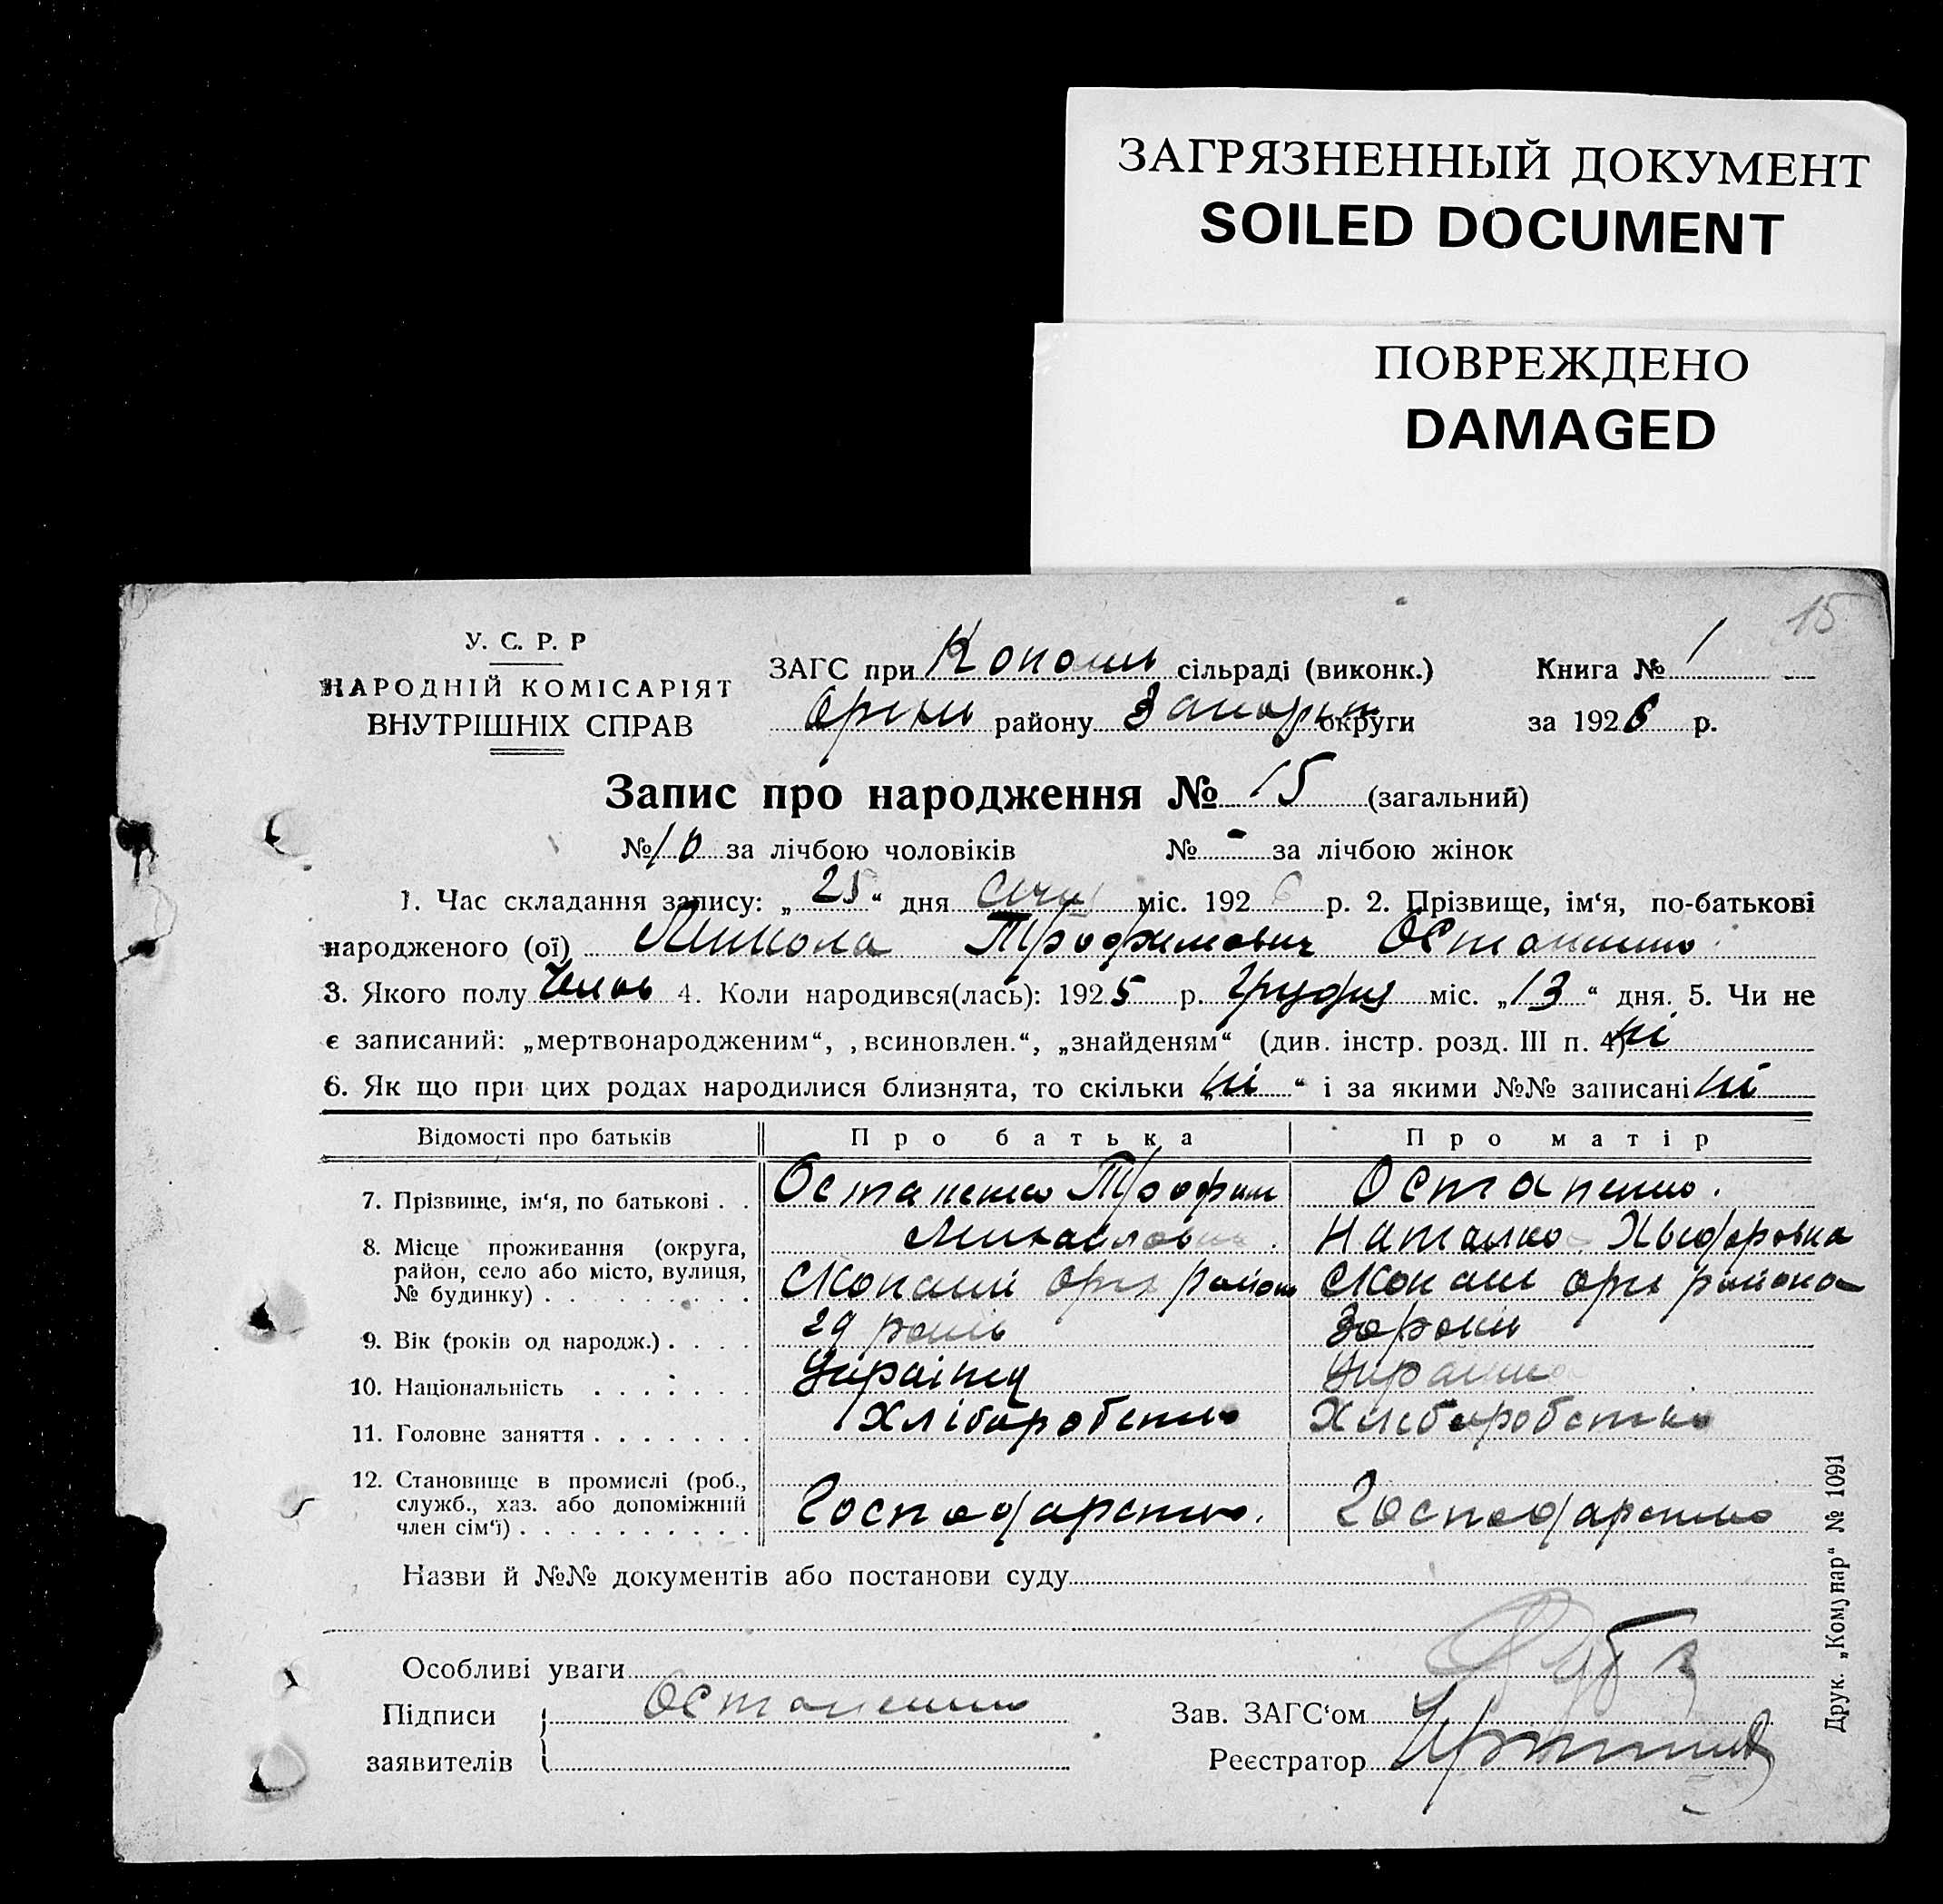 ЗАГРЯЗНЕННЫЙ ДОКУМЕНТ
SOILED DOCUMENT
ПОВРЕЖДЕНО
DAMAGED
15
У. С. Р. Р
НАРОДНІЙ КОМІСАРІЯТ
ВНУТРІШНІХ СПРАВ
ЗАГС при Копань сільраді (виконк.) Книга № 1
району округи за 1926 р.
Запис про народження № 15 (загальний)
№ 10 за лічбою чоловіків № - за лічбою жінок
1. Час складання запису: „25“ дня Січня міс. 1926 р. 2. Прізвище, ім‘я, по-батькові
народженого (ої) Микола Трофимович Остапенко
3. Якого полу 4. Коли народився(лась): 1925 р. Грудня міс. „13“ дня. 5. Чи не
є записаний: „мертвонародженим“, „всиновлен.“, „знайденям“ (див. інстр. розд. III п. 4) ні
6. Як що при цих родах народилися близнята, то скільки „ні“ і за якими №№ записані ні
Відомості про батьків Про батька Про матір
7. Прізвище, ім‘я, по батькові . . Остапенко Трофим Остапенко.
Михайлович Наталка
8. Місце проживання (округа,
район, село або місто, вулиця,
№ будинку) . . . . . . . . . Копані Оріх району Копані оріх района
9. Вік (років од народж.) . . . . 29 років 30 років
10. Національність . . . . . . . Українец Українка
11. Головне заняття . . . . . . . Хліборобство Хліборобство
12. Становище в промислі (роб.,
служб., хаз. або допоміжний
член сім‘ї) . . . . . . . . . . Господарство. Господарство
Назви й №№ документів або постанови суду
Особливі уваги
Підписи Остапенко Зав. ЗАГС‘ом
заявителів Реєстратор
Друк. „Комунар“ № 1091